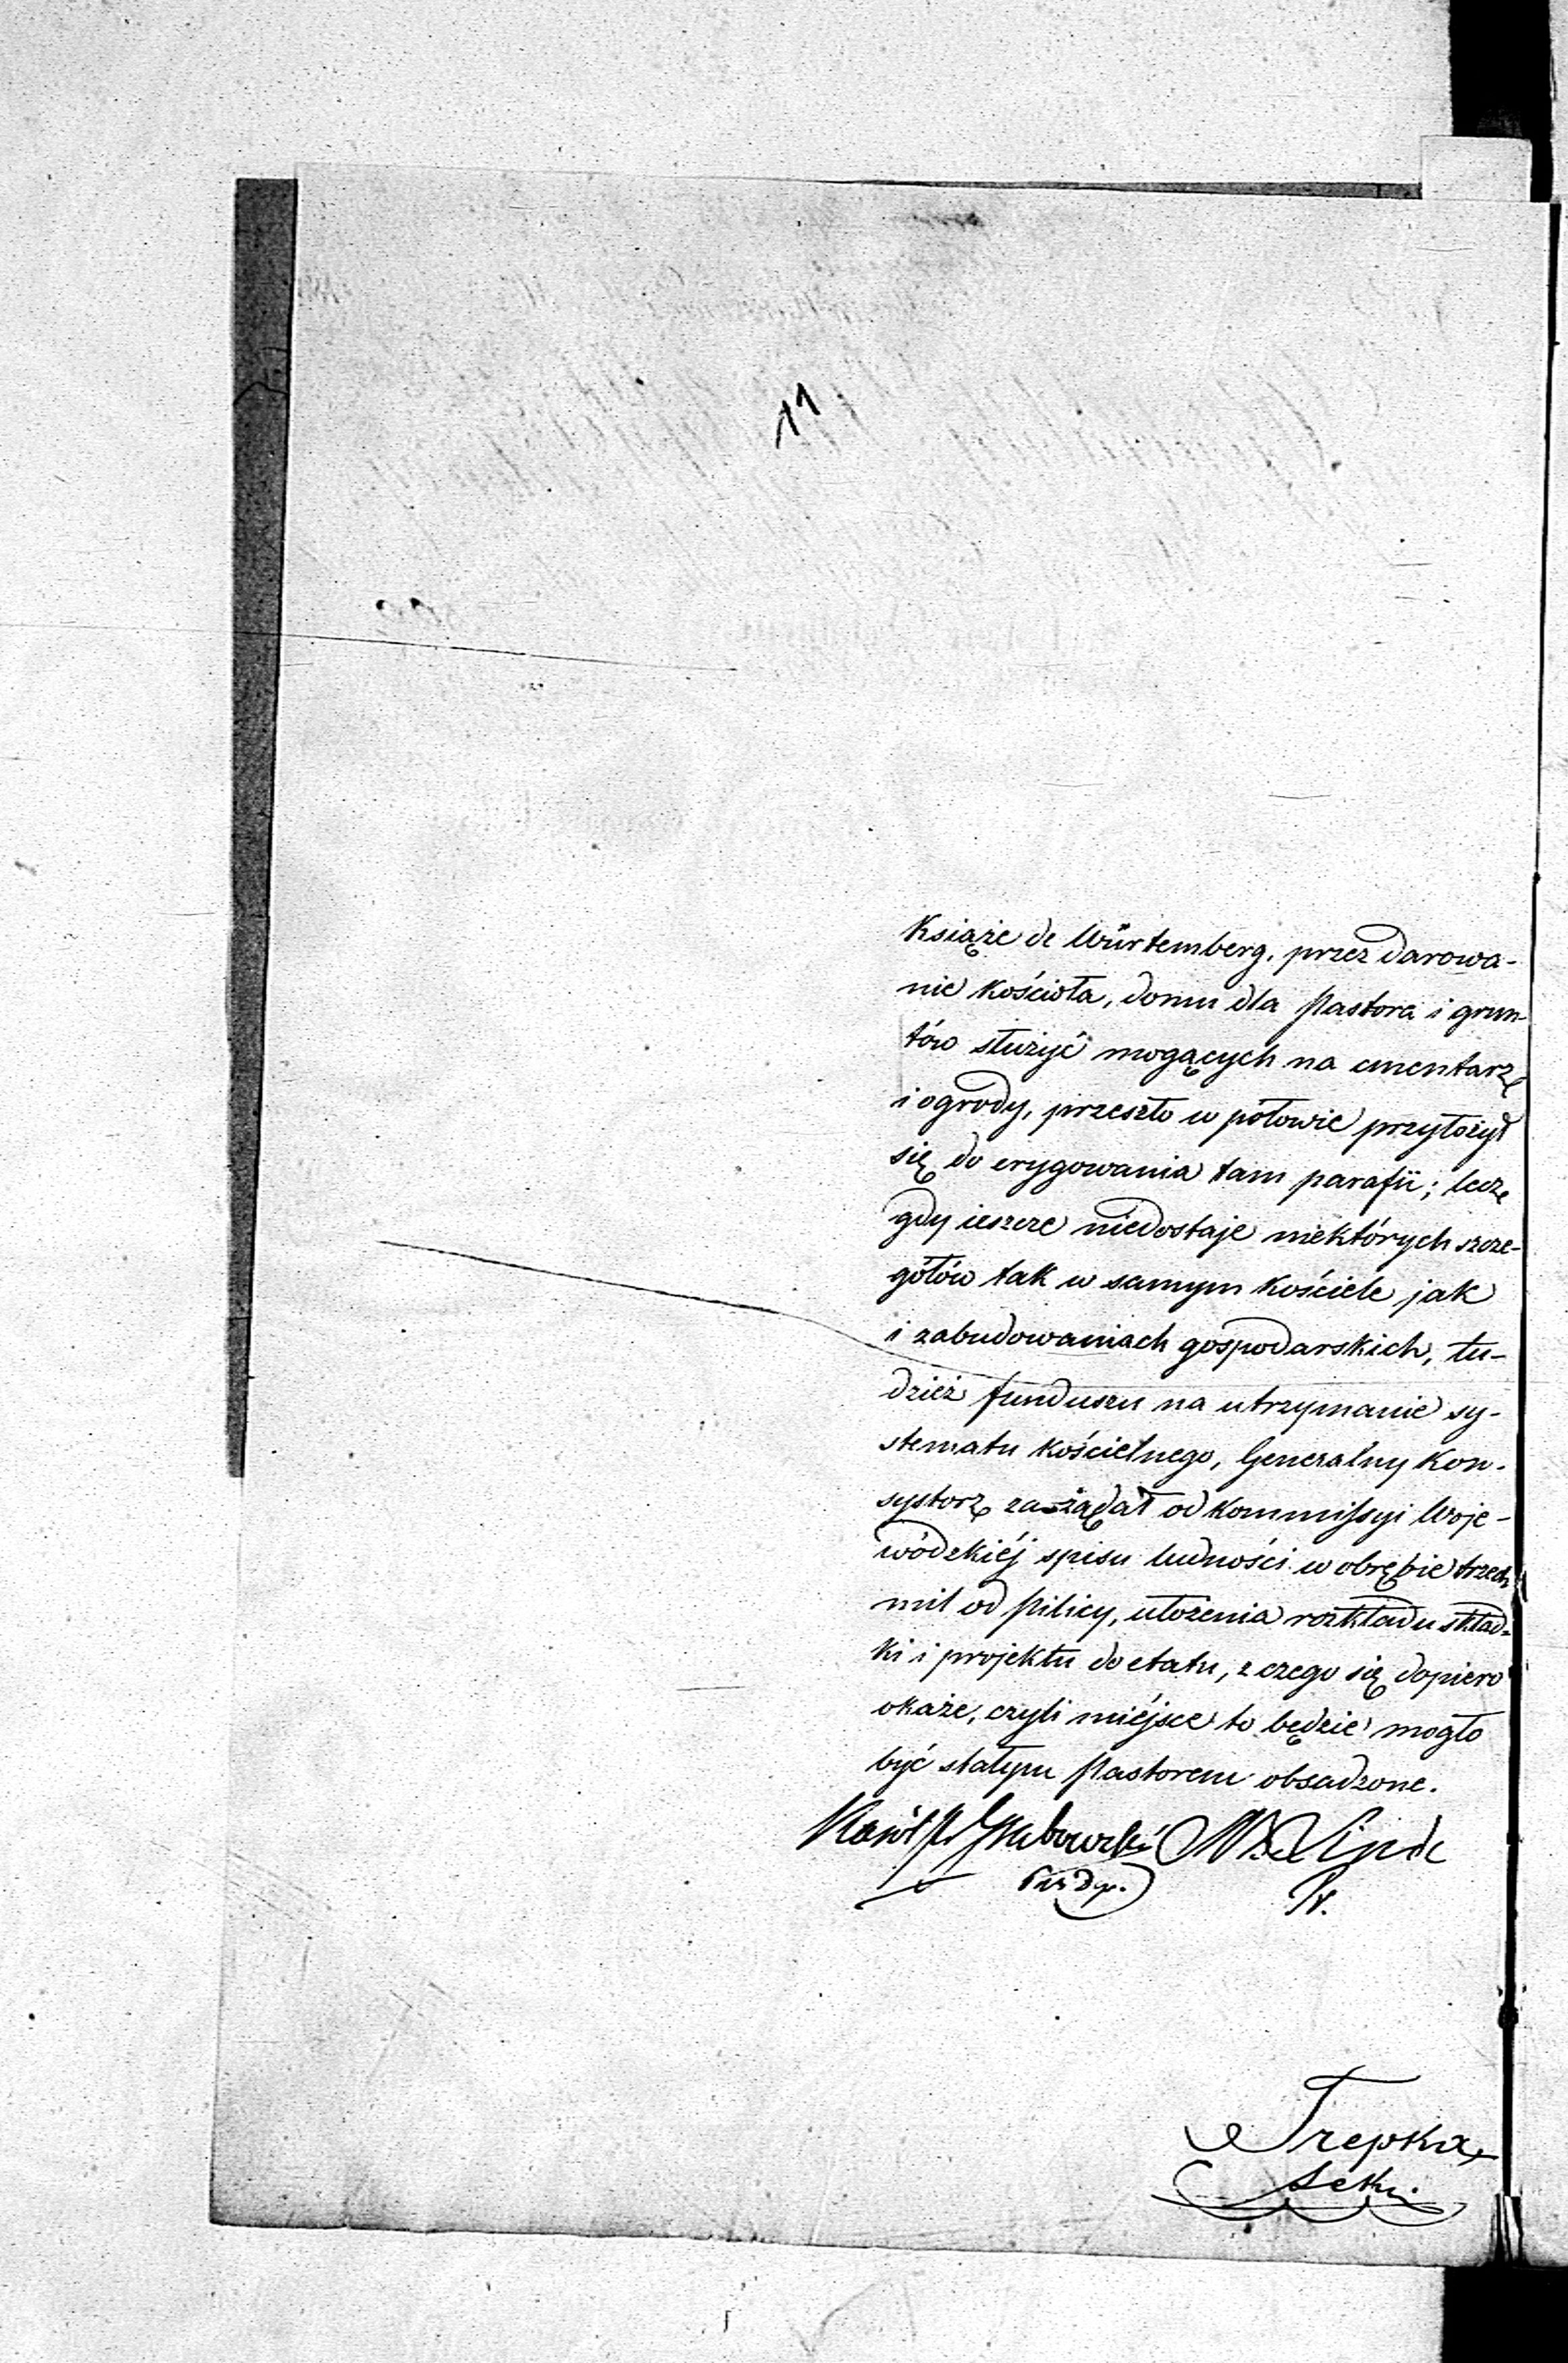 11
Książe de Würtemberg, przez darowa-
nie kościoła, domu dla Pastora i grun-
tów służyć mogących na cmentarz
i ogrody, przeszło w połowie przyłożył
się do erygowania tam parafii; lecz
gdy ieszcze niedostaje niektórych szcze-
gółów tak w samym kościele jak
i zabudowaniach gospodarskich, tu-
dzież funduszu na utrzymanie sy-
stematu kościelnego, Generalny Kon-
systorz zażądał od Kommissyi Woje-
wódzkiéj spisu ludności w obrębie trzech
mil od Pilicy, ułożenia rozkładu skład-
ki i projektu do etatu, z czego się dopiero
okaże, czyli miéjsce to będzie mogło
być stałym Pastorem obsadzone.
Karól Grabowski Linde
Pr.
Trepka
Sekr.